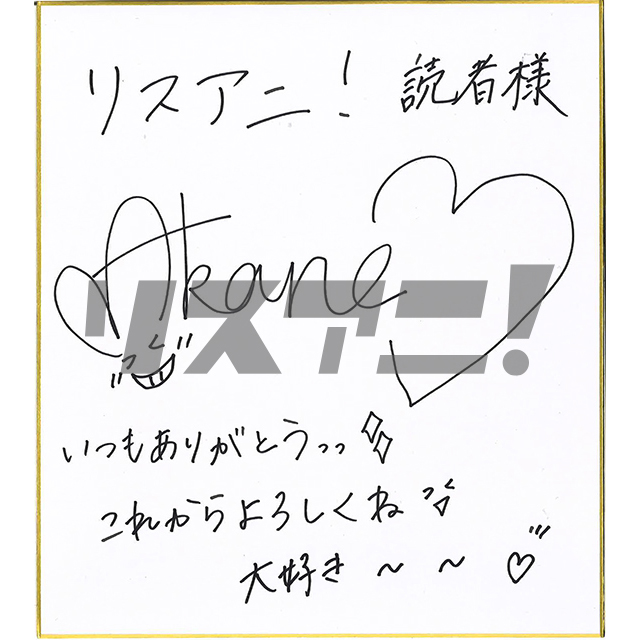 リスアニ! 読者様
Akane
リスアニ!
いつもありがとうっっ
これからよろしくね
大好き～～♡